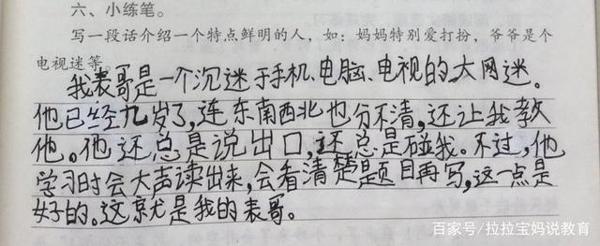 六、小练笔。
写一段话介绍一个特点鲜明的人，如：妈妈特别爱打扮，爷爷是个
电视迷等。
我表哥是一个沉迷于手机、电脑、电视的大网迷。
他已经九岁了，连东南西北也分不清，还让我教
他。他还总是说出口，还总是碰我。不过，他
学习时会大声读出来，会看清楚题目再写，这一点是
好的。这就是我的表哥。
百家号/拉拉宝妈说教育